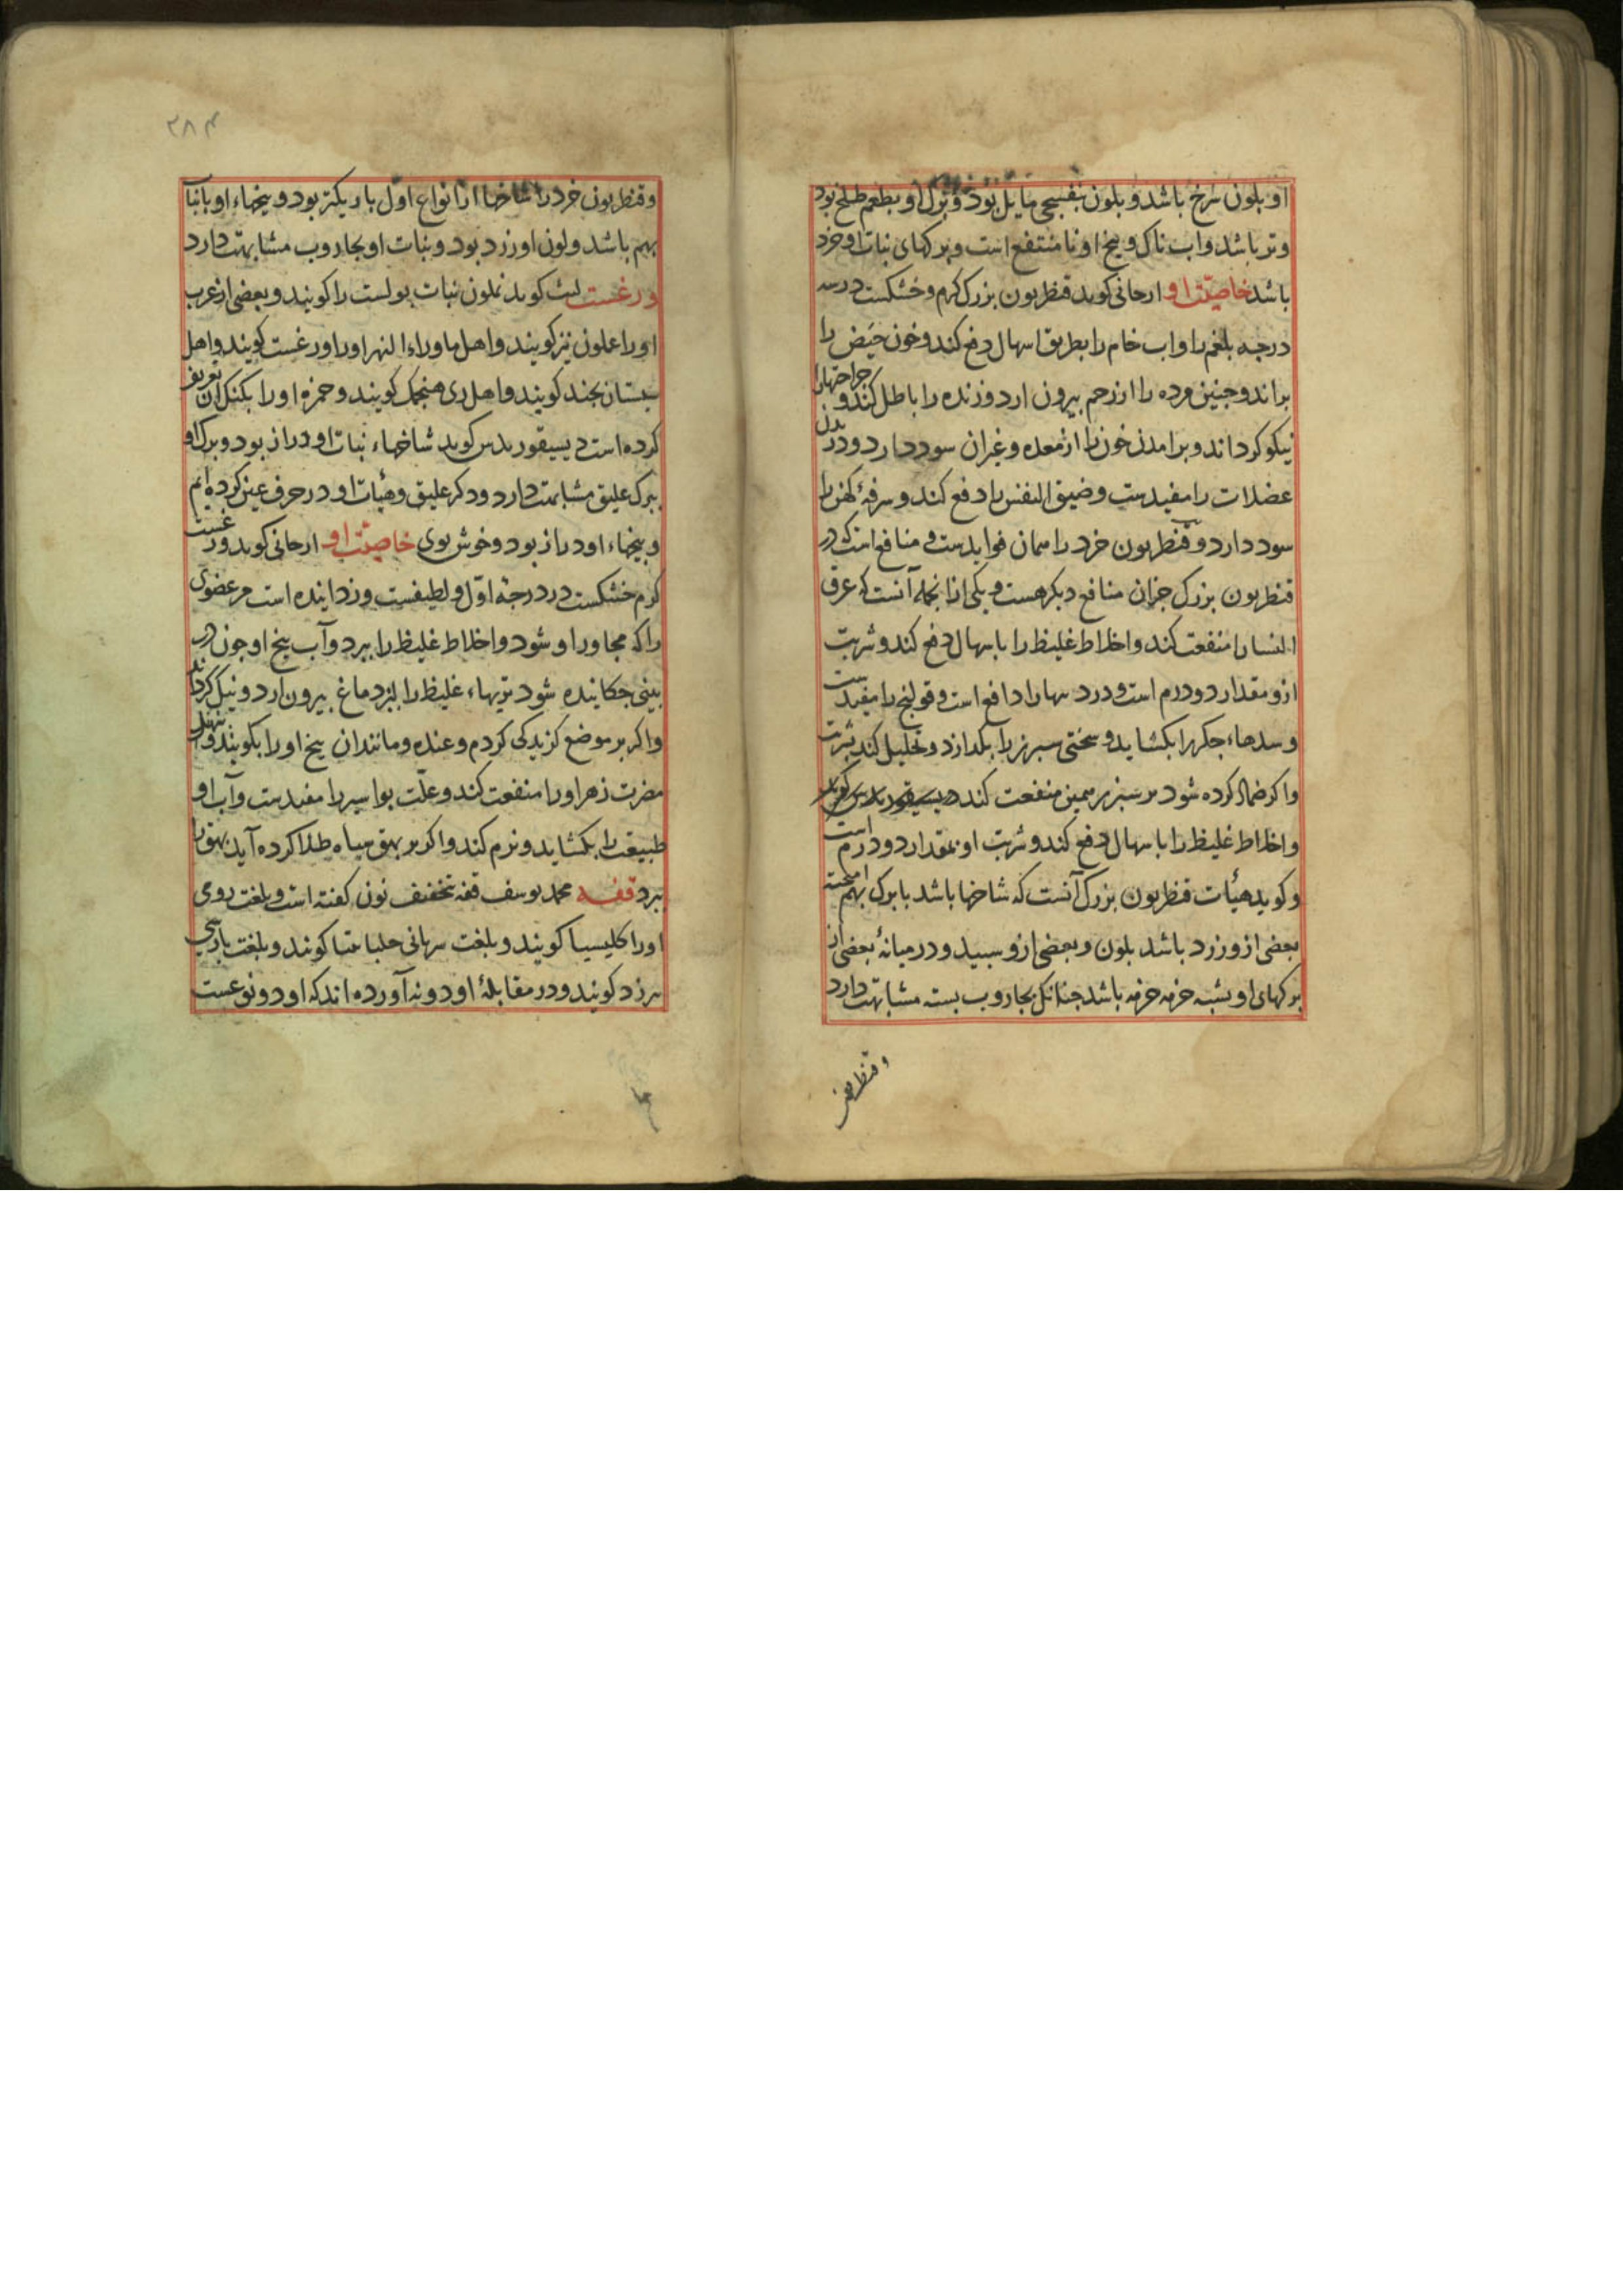 او بلون سرخ باشد و بلون بنفسجی مایل بود و برک او بطعم طلخ بود
و تر باشد و اب ناک و بیخ او نا منتفع است و برکهای نبات او خرد
باشد خاصیّت او ارجانی کوید قنطریون بزرک کرم و خشکست در سه
درجه بلغم را و اب خام را بطریق اسهال دفع کند و خون حیض را
براند و جنین مرده را از رحم بیرون ارد و زنده را باطل کند و جراحتها را
نیکو کرداند و برامدن خون را از معده و غیران سود دارد و درد بدن
عضلات را مفیدست و ضیق النفس را دفع کند و سرفهٔ کهن را
سود دارد و قنطریون خرد را همان فوایدست و منافع است که در
قنطریون بزرک جزان منافع دیکر هست و یکی ازانجمله آنست که عرق
النسا را منفعت کند و اخلاط غلیظ را باسهال دفع کند و شربت
ازو مقدار دو درم است و درد را دافع است و قولنج را مفیدست
و سدهاء جکر را بکشاید و سختی سبرز را بکدازد و تحلیل کند بشربت
و اکر ضماد کرده شود بر سبرز همین منفعت کند دیسیقوریدس کوید
و اخلاط غلیظ را باسهال دفع کند و شربت او بمقدار دو درم است
و کوید هیأت قنطریون بزرک آنست که شاخها باشد با برک بهم امیخته
بعضی ازو زرد باشد بلون و بعضی ازو سبید و در میانهٔ بعضی از
برکهای او بشبه خرمه خرمه باشد جنانک بجاروب بسته مشابهت دارد
و قنطریون خرد
۲۸۴
و قنطریون خرد را شاخها از انواع اوّل باریکتر بود و بیخهاء او با نبات
بهم باشد و لون او زرد بود و نبات او بجاروب مشابهت دارد
ورغست لیث کوید نملون نبات بولست را کویند و بعضی از عرب
او را عملون نیز کویند و اهل ماوراء النهر او را ورغست کویند و اهل
سیستان بجند کویند و اهل ری هنجمک کویند و حمزه او را بکنکران تعریف
کرده است دیسیقوریدس کوید شاخهاء نبات او دراز بود و برک او
ببرک علیق مشابهت دارد و ذکر علیق و هیأت او در حرف عین کرده ایم
و بیخهاء او دراز بود و خوش بوی خاصیّت او ارجانی کوید ورغست
کرم خشکست در درجهٔ اوّل و لطیفست و زداینده است مر عضوی
را که مجاور او شود و اخلاط غلیظ را ببرد و آب بیخ او جون در
بینی جکانیده شود تریهاء غلیظ را از دماغ بیرون ارد و نیک کرداند
و اکر بر موضع کزیدکی کردم و عنده و مانند ان بیخ او را بکویند و بنهند
مضرت زهر او را منفعت کند و علّت بواسیر را مفیدست و آب او
طبیعت را بکشاید و نرم کند و اکر بر بهق سیاه طلا کرده آید بهق را
ببرد قنه محمد یوسف قنه بتخفیف نون کفته است و بلغت رومی
او را کلیسیا کویند و بلغت سریانی حلباسا کویند و بلغت بارسی
بیرزد کویند و در مقابلهٔ ادویه آورده اند که او دو نوعست